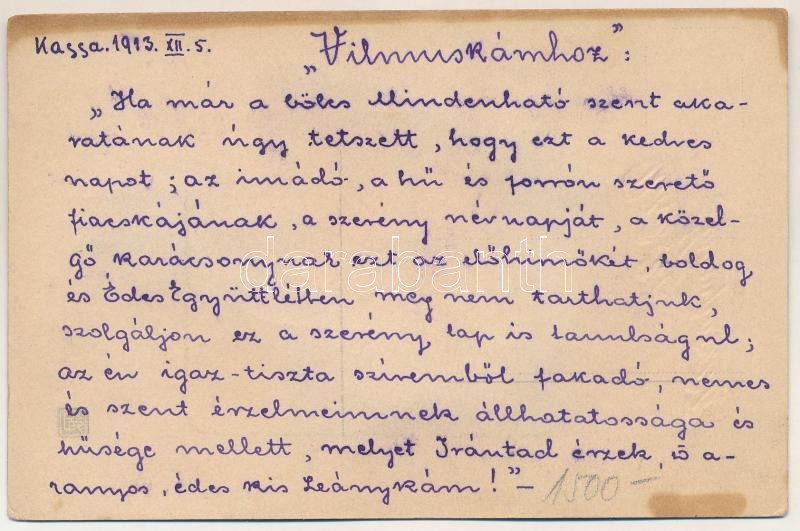 Kassa. 1913. XII. 5.
„Vilmuskámhoz”:
„Ha már a bölcs Mindenható szent aka-
ratának úgy tetszett, hogy ezt a kedves
napot; az imádó, a hű és forrón szerető
fiacskájának, a szerény névnapját, a közel-
gő karácsonynak ezt az előhirnökét, boldog
és Édes Együttlétben meg nem tarthatjuk,
szolgáljon ez a szerény lap is tanulságul;
az én igaz-tiszta szívemből fakadó, nemes
és szent érzelmeimnek állhatatossága és
hűsége mellett, melyet Irántad érzek, ő a-
ranyos, édes kis Leánykám!”–
1500–
darabanth